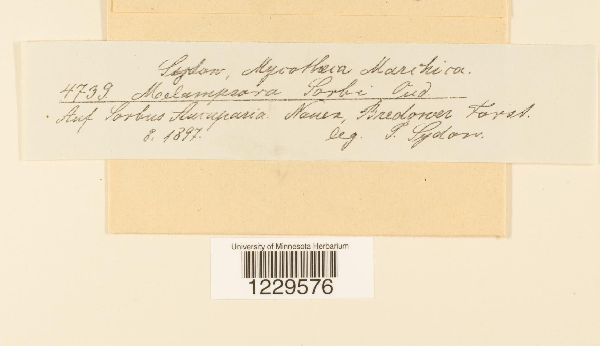 Sydow, Mycotheca Marchica.
4739 Melampsora Sorbi Oud
Auf Sorbus Aucuparia. Nauen, Bredower Forst.
8. 1897. leg. P. Sydow.
University of Minnesota Herbarium
1229576